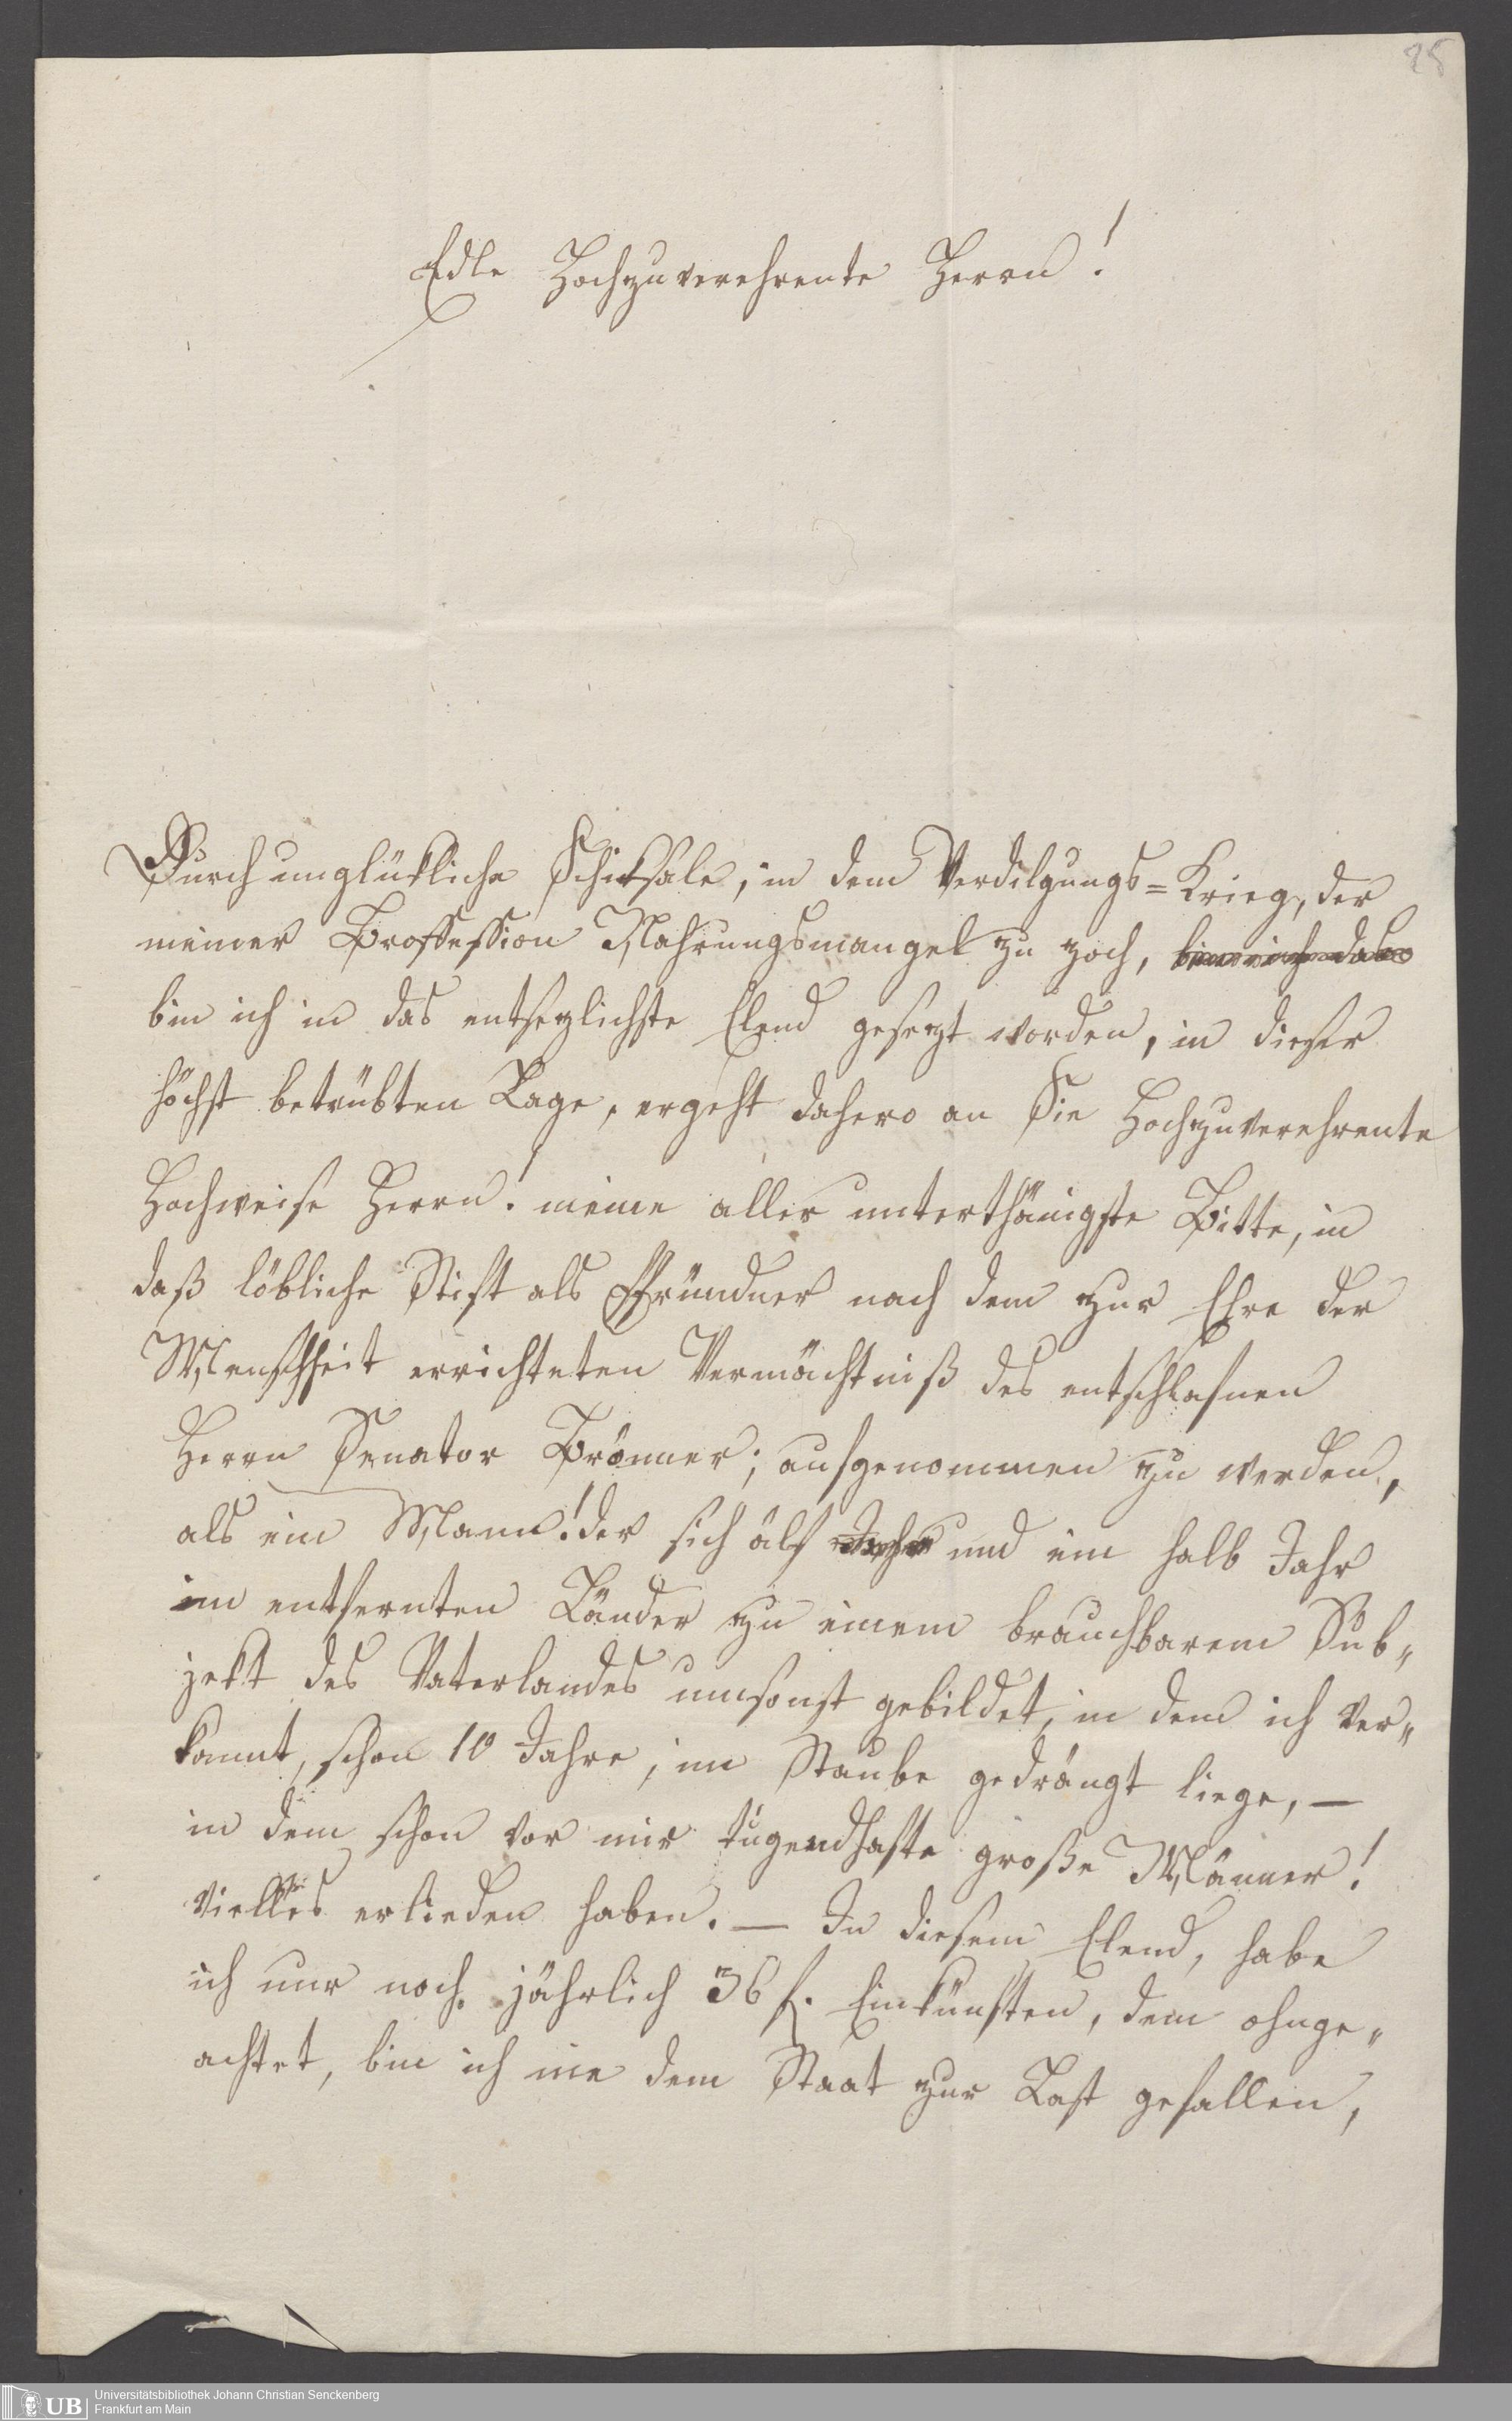 28
Edle Hochzuverehrente Herrn!
Durch unglükliche Schiksale, in dem Verdilgungs=Krieg, der
meiner Proffession Nahrungsmangel zu zoch, bin ich das
bin ich in das entsezlichste Elend gesezt worden, in dieser
höchst betrübten Lage, ergeht dahero an Sie Hochzuverehrente
Hochweise Herrn! meine aller unterthänigste Bitte, in
daß löbliche Stift als Pfründner nach dem zur Ehre der
Menschheit errichteten Vermächtniß des entschlafnen
Herrn Senator Brönner; aufgenommen zu werden,
als ein Mann! der sich älf Jahr und ein halb Jahr
in entfernten Länder zu einem brauchbarem Sub„
jekt des Vaterlandes umsonst gebildet, in dem ich ver„
kannt, schon 10 Jahre, im Staube gedrängt liege, —
in dem schon vor mir tugendhafte große Männer!
vielles erlieden haben. — In diesem Elend, habe
ich nur noch jährlich 36 f. Einkünften, dem ohnge„
achtet, bin ich nie dem Staat zur Last gefallen,
UB
Universitätsbibliothek Johann Christian Senckenberg
Frankfurt am Main